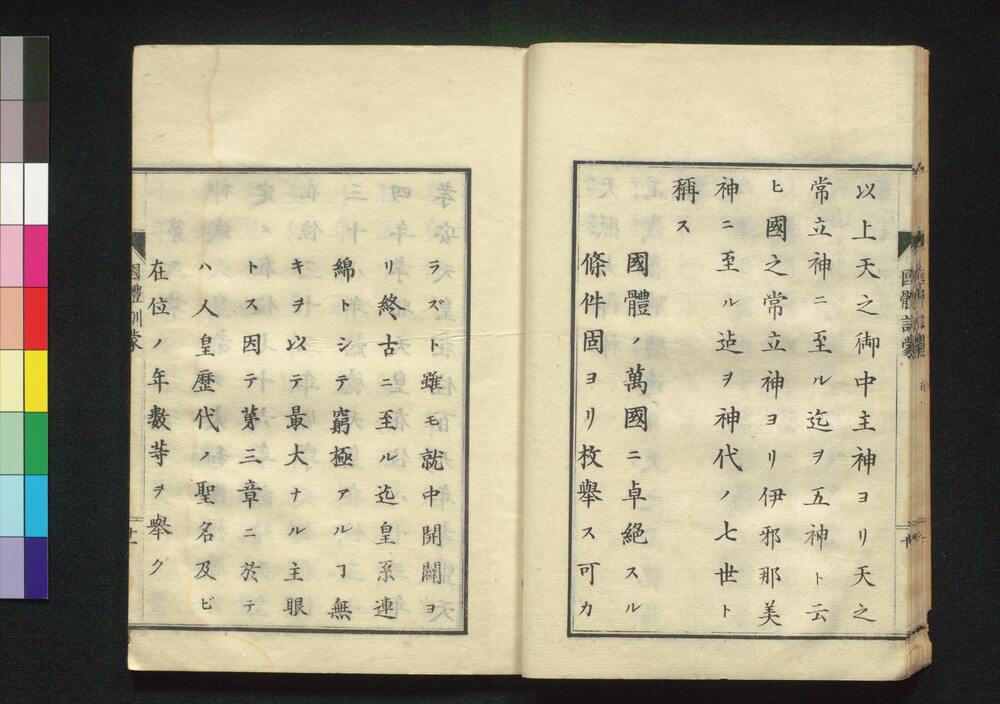 以上天之御中主神ヨリ天之
常立神ニ至ル迄ヲ五神ト云
ヒ國之常立神ヨリ伊邪那美
神ニ至ル迠ヲ神代ノ七世ト
稱ス
國體ノ萬國ニ卓絶スル
條件固ヨリ枚舉ス可カ
ラズト雖モ就中開闢ヨ
リ終古ニ至ル迄皇系連
綿トシテ窮極アルヿ無
キヲ以テ最大ナル主眼
トス因テ苐三章ニ於テ
ハ人皇歷代ノ聖名及ビ
在位ノ年數等ヲ舉グ
國體訓蒙
國體訓蒙